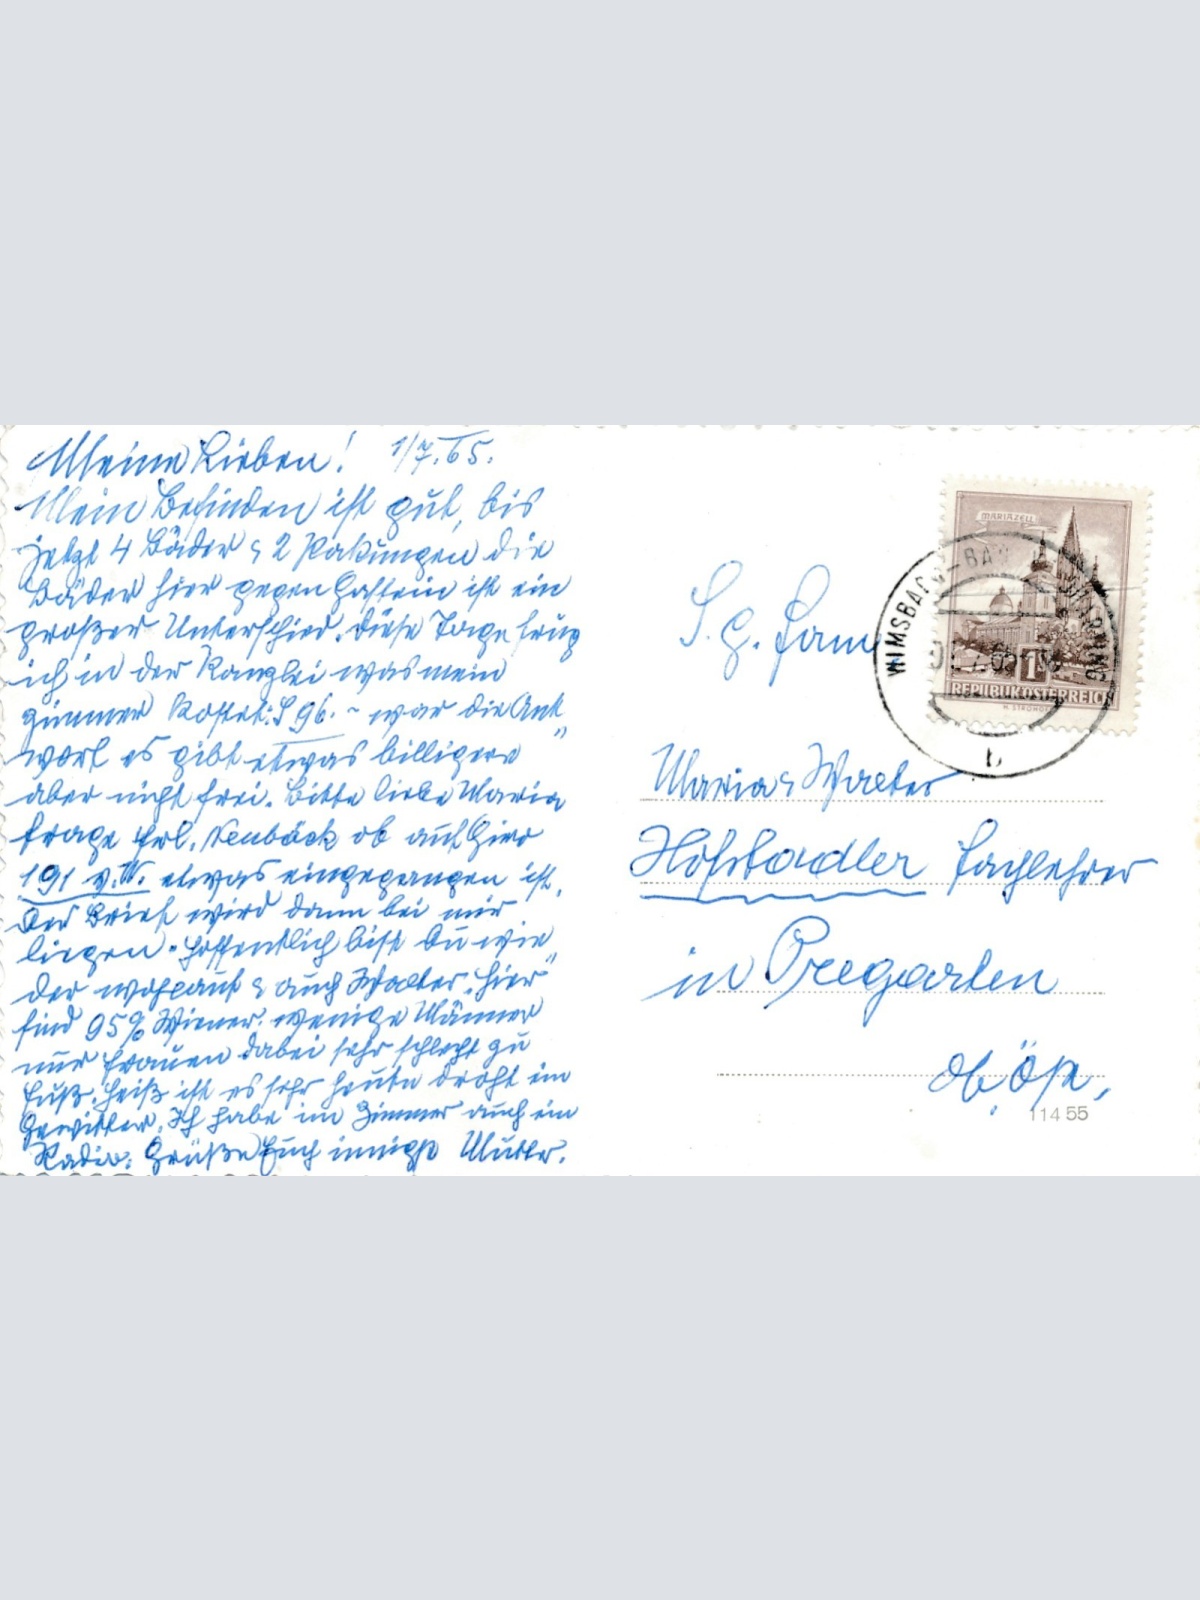 Meine Lieben! 1/7.65.
Mein Befinden ist gut, bis
jetzt 4 Bäder & 2 Pakungen die
Bäder hier gegen Gastein ist ein
großer Unterschied. Diese Tage frug
ich in der Kanzlei was mein
Zimmer kostet: S 96.- war die Ant„
wort es gibt etwas billigere
aber nicht frei. Bitte liebe Maria
frage Frl. Neubäck ob auf Giro
191 v. W. etwas eingegangen ist.
Der Brief wird dann bei mir
liegen. Hoffentlich bist Du wie„
der wohlauf & auch Walter. Hier
sind 95% Wiener. wenige Männer
nur Frauen dabei sehr schlecht zu
Fuß. Heiß ist es sehr heute droht ein
Gewitter. Ich habe im Zimmer auch ein
Radio. Grüße Euch innigst Mutter.
MARIAZELL
WIMSBACH-BAD
1S
REPUBLIK ÖSTERREICH
b
S. g. Fam
Maria & Walter
Hofstadler Fachlehrer
in Pregarten
Ob. Öst.
114 55